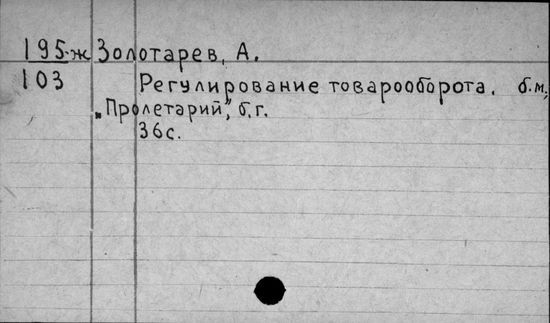 195-ж Золотарев, А.
103 Регулирование товарооборота. б.м.,
„Пролетарий", б.г.
36с.